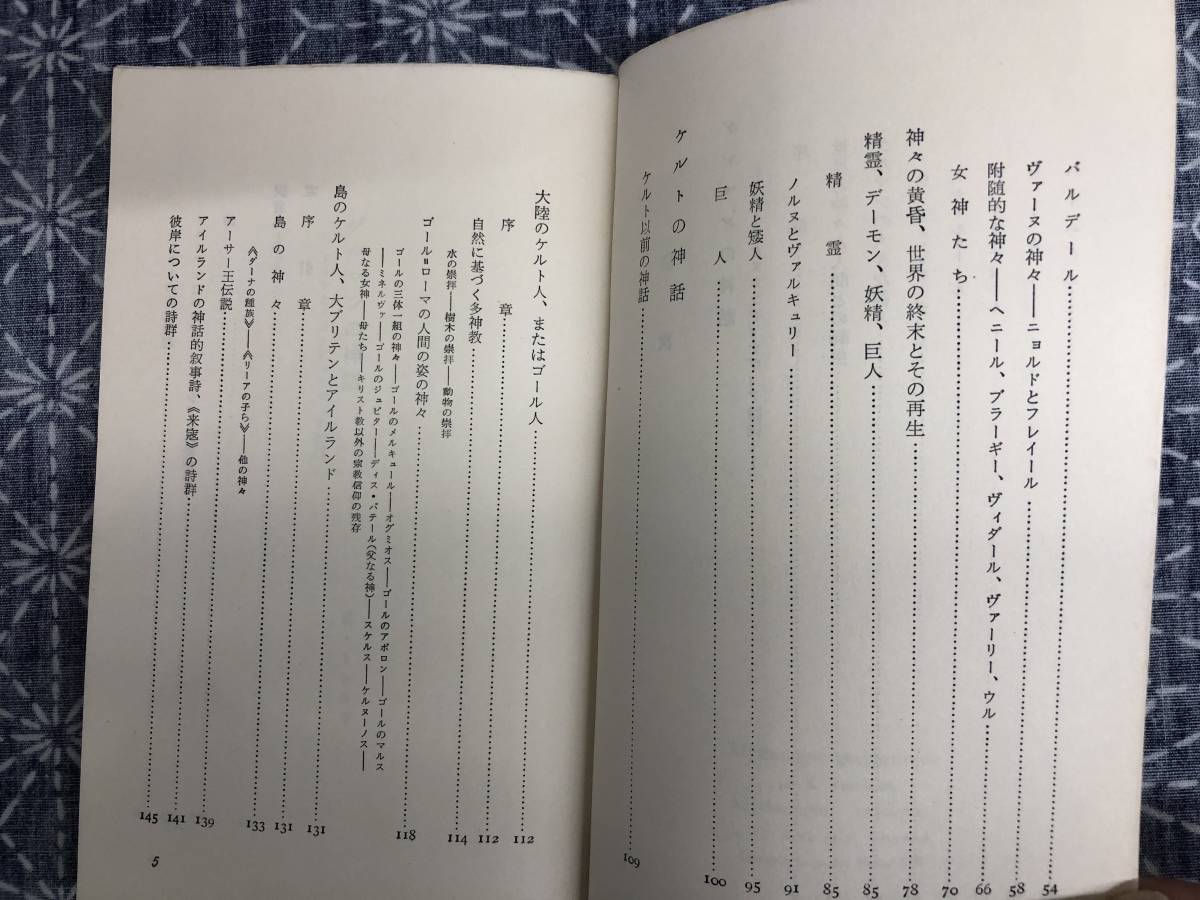 バルデール……54
ヴァーヌの神々——ニョルドとフレイール……58
附随的な神々——ヘニール、ブラーギー、ヴィダール、ヴァーリー、ウル……66
女神たち……70
神々の黄昏、世界の終末とその再生……78
精霊、デーモン、妖精、巨人……85
精霊……85
ノルヌとヴァルキュリー……91
妖精と矮人……95
巨人……100
ケルトの神話
ケルト以前の神話……109
大陸のケルト人、またはゴール人……112
序章……112
自然に基づく多神教……114
水の崇拝——樹木の崇拝——動物の崇拝
ゴール=ローマの人間の姿の神々……118
ゴールの三体一組の神々——ゴールのメルキュール——オグミオス——ゴールのアポロン——ゴールのマルス
——ミネルヴァ——ゴールのジュピター——ディス・パテール(父なる神)——スケルス——ケルヌーノス——
母なる女神——母たち——キリスト教以外の宗教信仰の残存
島のケルト人、大ブリテンとアイルランド……131
序章……131
島の神々……133
《ダーナの種族》——《リーアの子ら》——他の神々
アーサー王伝説……139
アイルランドの神話的叙事詩、《来寇》の詩群……141
彼岸についての詩群……145
5